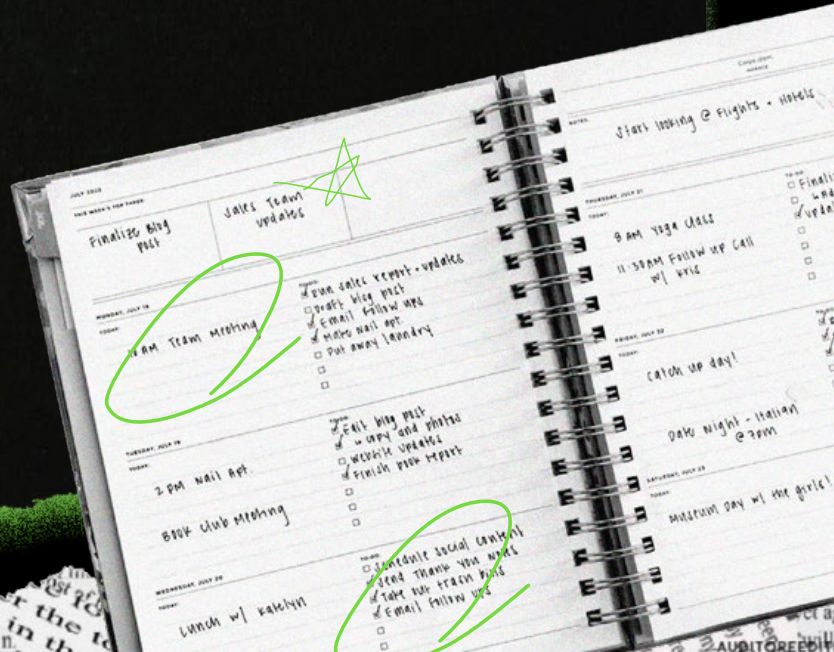 JULY 2022
THIS WEEK'S TOP THREE:
Finalize Blog
post
Sales Team
updates
MONDAY, JULY 18
TODAY:
AM Team Meeting
TO-DO:
Run sales report + updates
Draft blog post
Email follow ups
Make nail apt.
Put away laundry
TUESDAY, JULY 19
TODAY:
2 PM Nail Apt.
Book Club Meeting
TO-DO:
Edit blog post
↳ copy and photos
Website updates
Finish book report
WEDNESDAY, JULY 20
TODAY:
Lunch w/ Katelyn
TO-DO:
Schedule social content
Send Thank you notes
Take out trash bins
Email follow ups
Carpe diem.
HORACE
NOTES:
Start looking @ Flights + Hotels
THURSDAY, JULY 21
TODAY:
8 AM Yoga Class
11:30AM Follow up Call
w/ Kris
TO-DO:
FRIDAY, JULY 22
TODAY:
Catch up day!
Date Night - Italian
@ 7pm
SATURDAY, JULY 23
TODAY:
Museum Day w/ the girls!
r the
in th